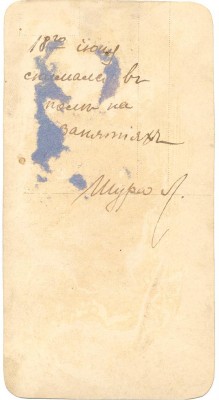 18го июня
снимался въ
полѣ на
занятіяхъ
Шура Л.